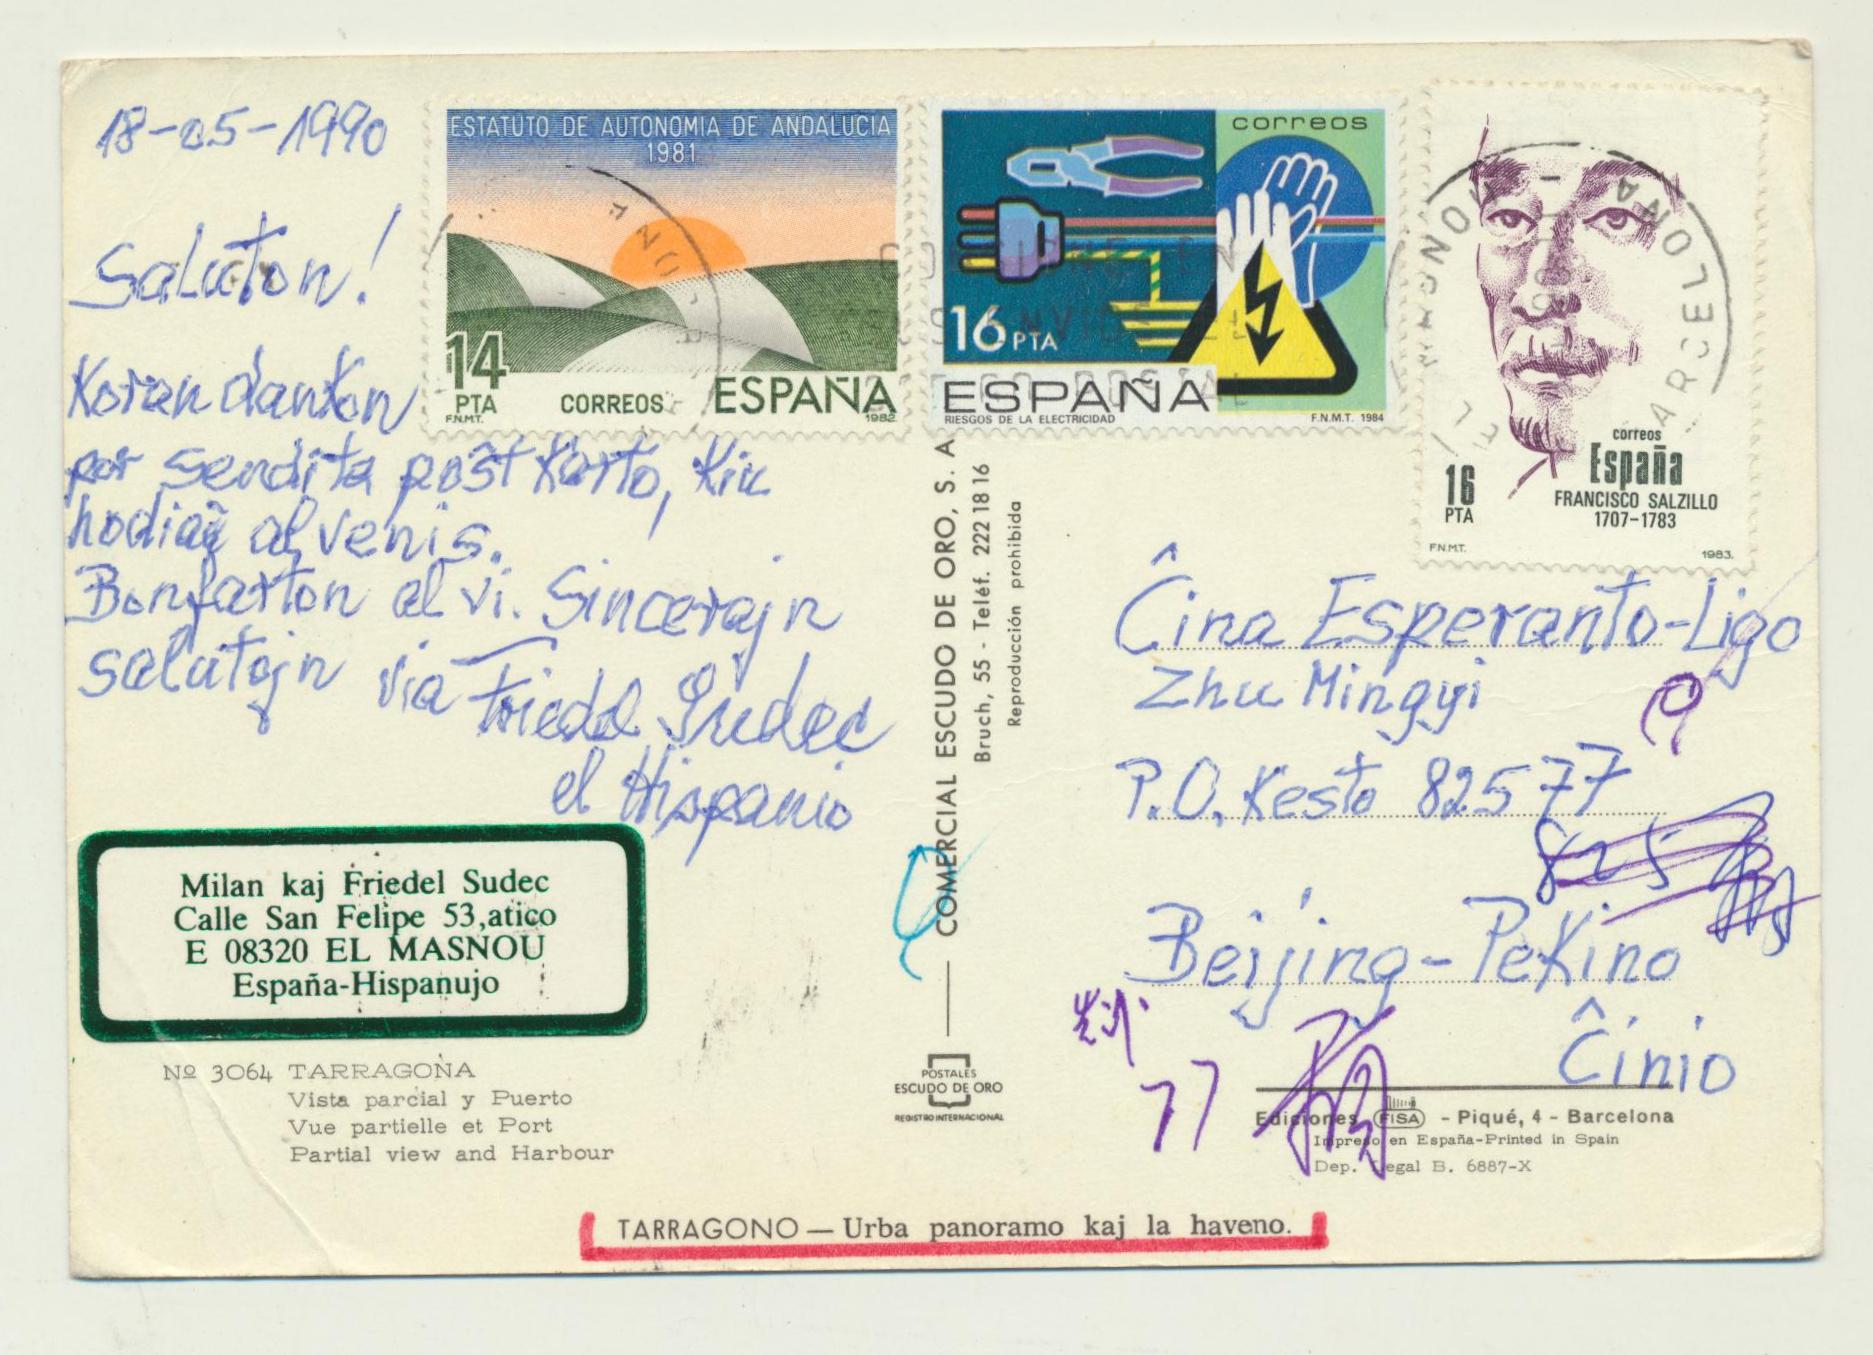 18-05-1990
Saluton!
Koran dankon
por sendita poŝtkarto, kiu
hodiaŭ alvenis.
Bonfarton al vi. Sincerajn
salutojn via Friedel Sudec
el Hispanio
ESTATUTO DE AUTONOMIA DE ANDALUCIA
1981
14
PTA
CORREOS
ESPAÑA
F.N.M.T.
1982
correos
16 PTA
ESPAÑA
RIESGOS DE LA ELECTRICIDAD
F.N.M.T. 1984
correos
España
16
PTA
FRANCISCO SALZILLO
1707-1783
F.N.M.T.
1983.
BARCELONA
COMERCIAL ESCUDO DE ORO, S. A.
Bruch, 55 - Teléf. 222 18 16
Reproducción prohibida
Ĉina Esperanto-Ligo
Zhu Mingyi
P.O. Kesto 82577
825
Beijing-Pekino
Ĉinio
77
Milan kaj Friedel Sudec
Calle San Felipe 53,atico
E 08320 EL MASNOU
España-Hispanujo
Nº 3064 TARRAGONA
Vista parcial y Puerto
Vue partielle et Port
Partial view and Harbour
POSTALES
ESCUDO DE ORO
REGISTRO INTERNACIONAL
Ediciones FISA - Piqué, 4 - Barcelona
Impreso en España-Printed in Spain
Dep. Legal B. 6887-X
TARRAGONO — Urba panoramo kaj la haveno.